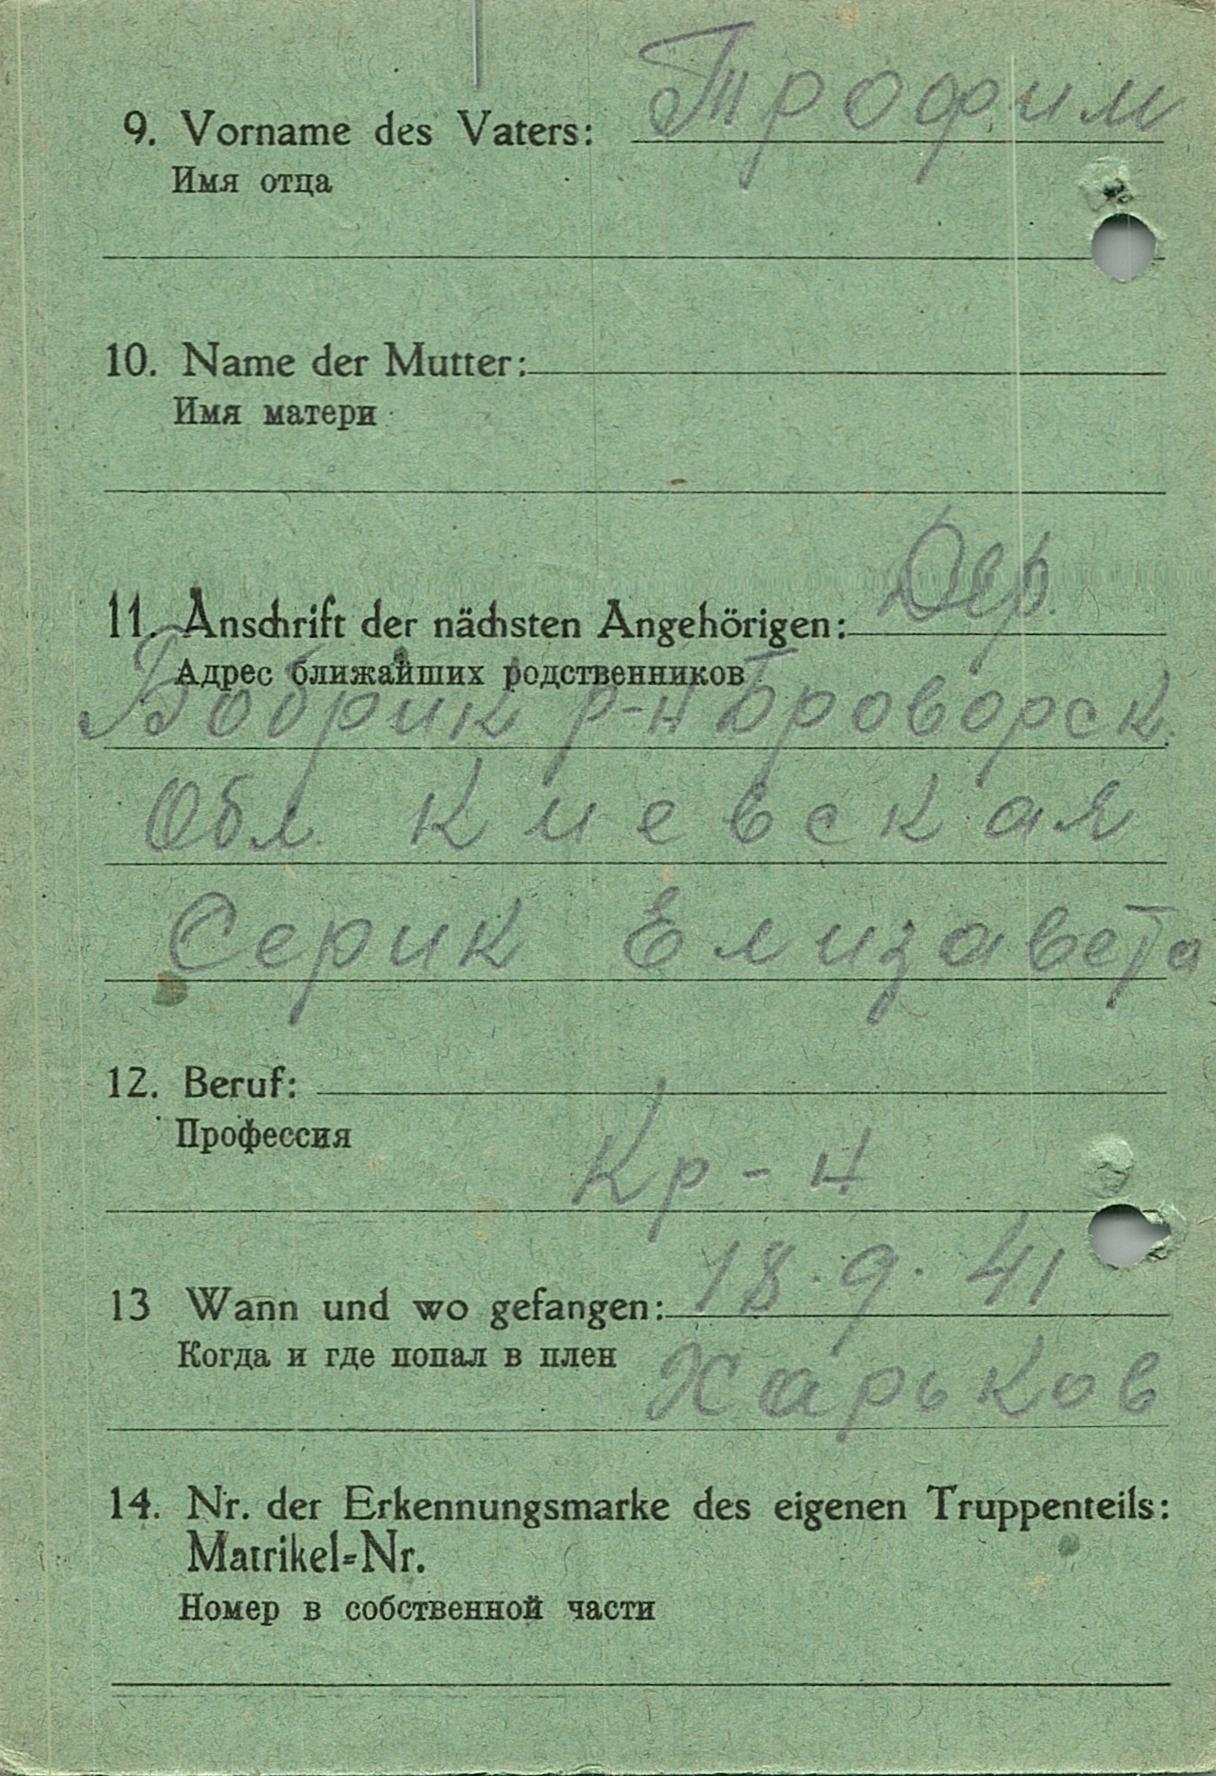 9. Vorname des Vaters: Трофим
Имя отца
10. Name der Mutter:
Имя матери
11. Anschrift der nächsten Angehörigen: Дер.
Адрес ближайших родственников
Бобрик р-н Броворск.
Обл. Киевская
Серик Елизавета
12. Beruf:
Профессия
Кр-н
13 Wann und wo gefangen: 18.9.41
Когда и где попал в плен Харьков
14. Nr. der Erkennungsmarke des eigenen Truppenteils:
Matrikel=Nr.
Номер в собственной части